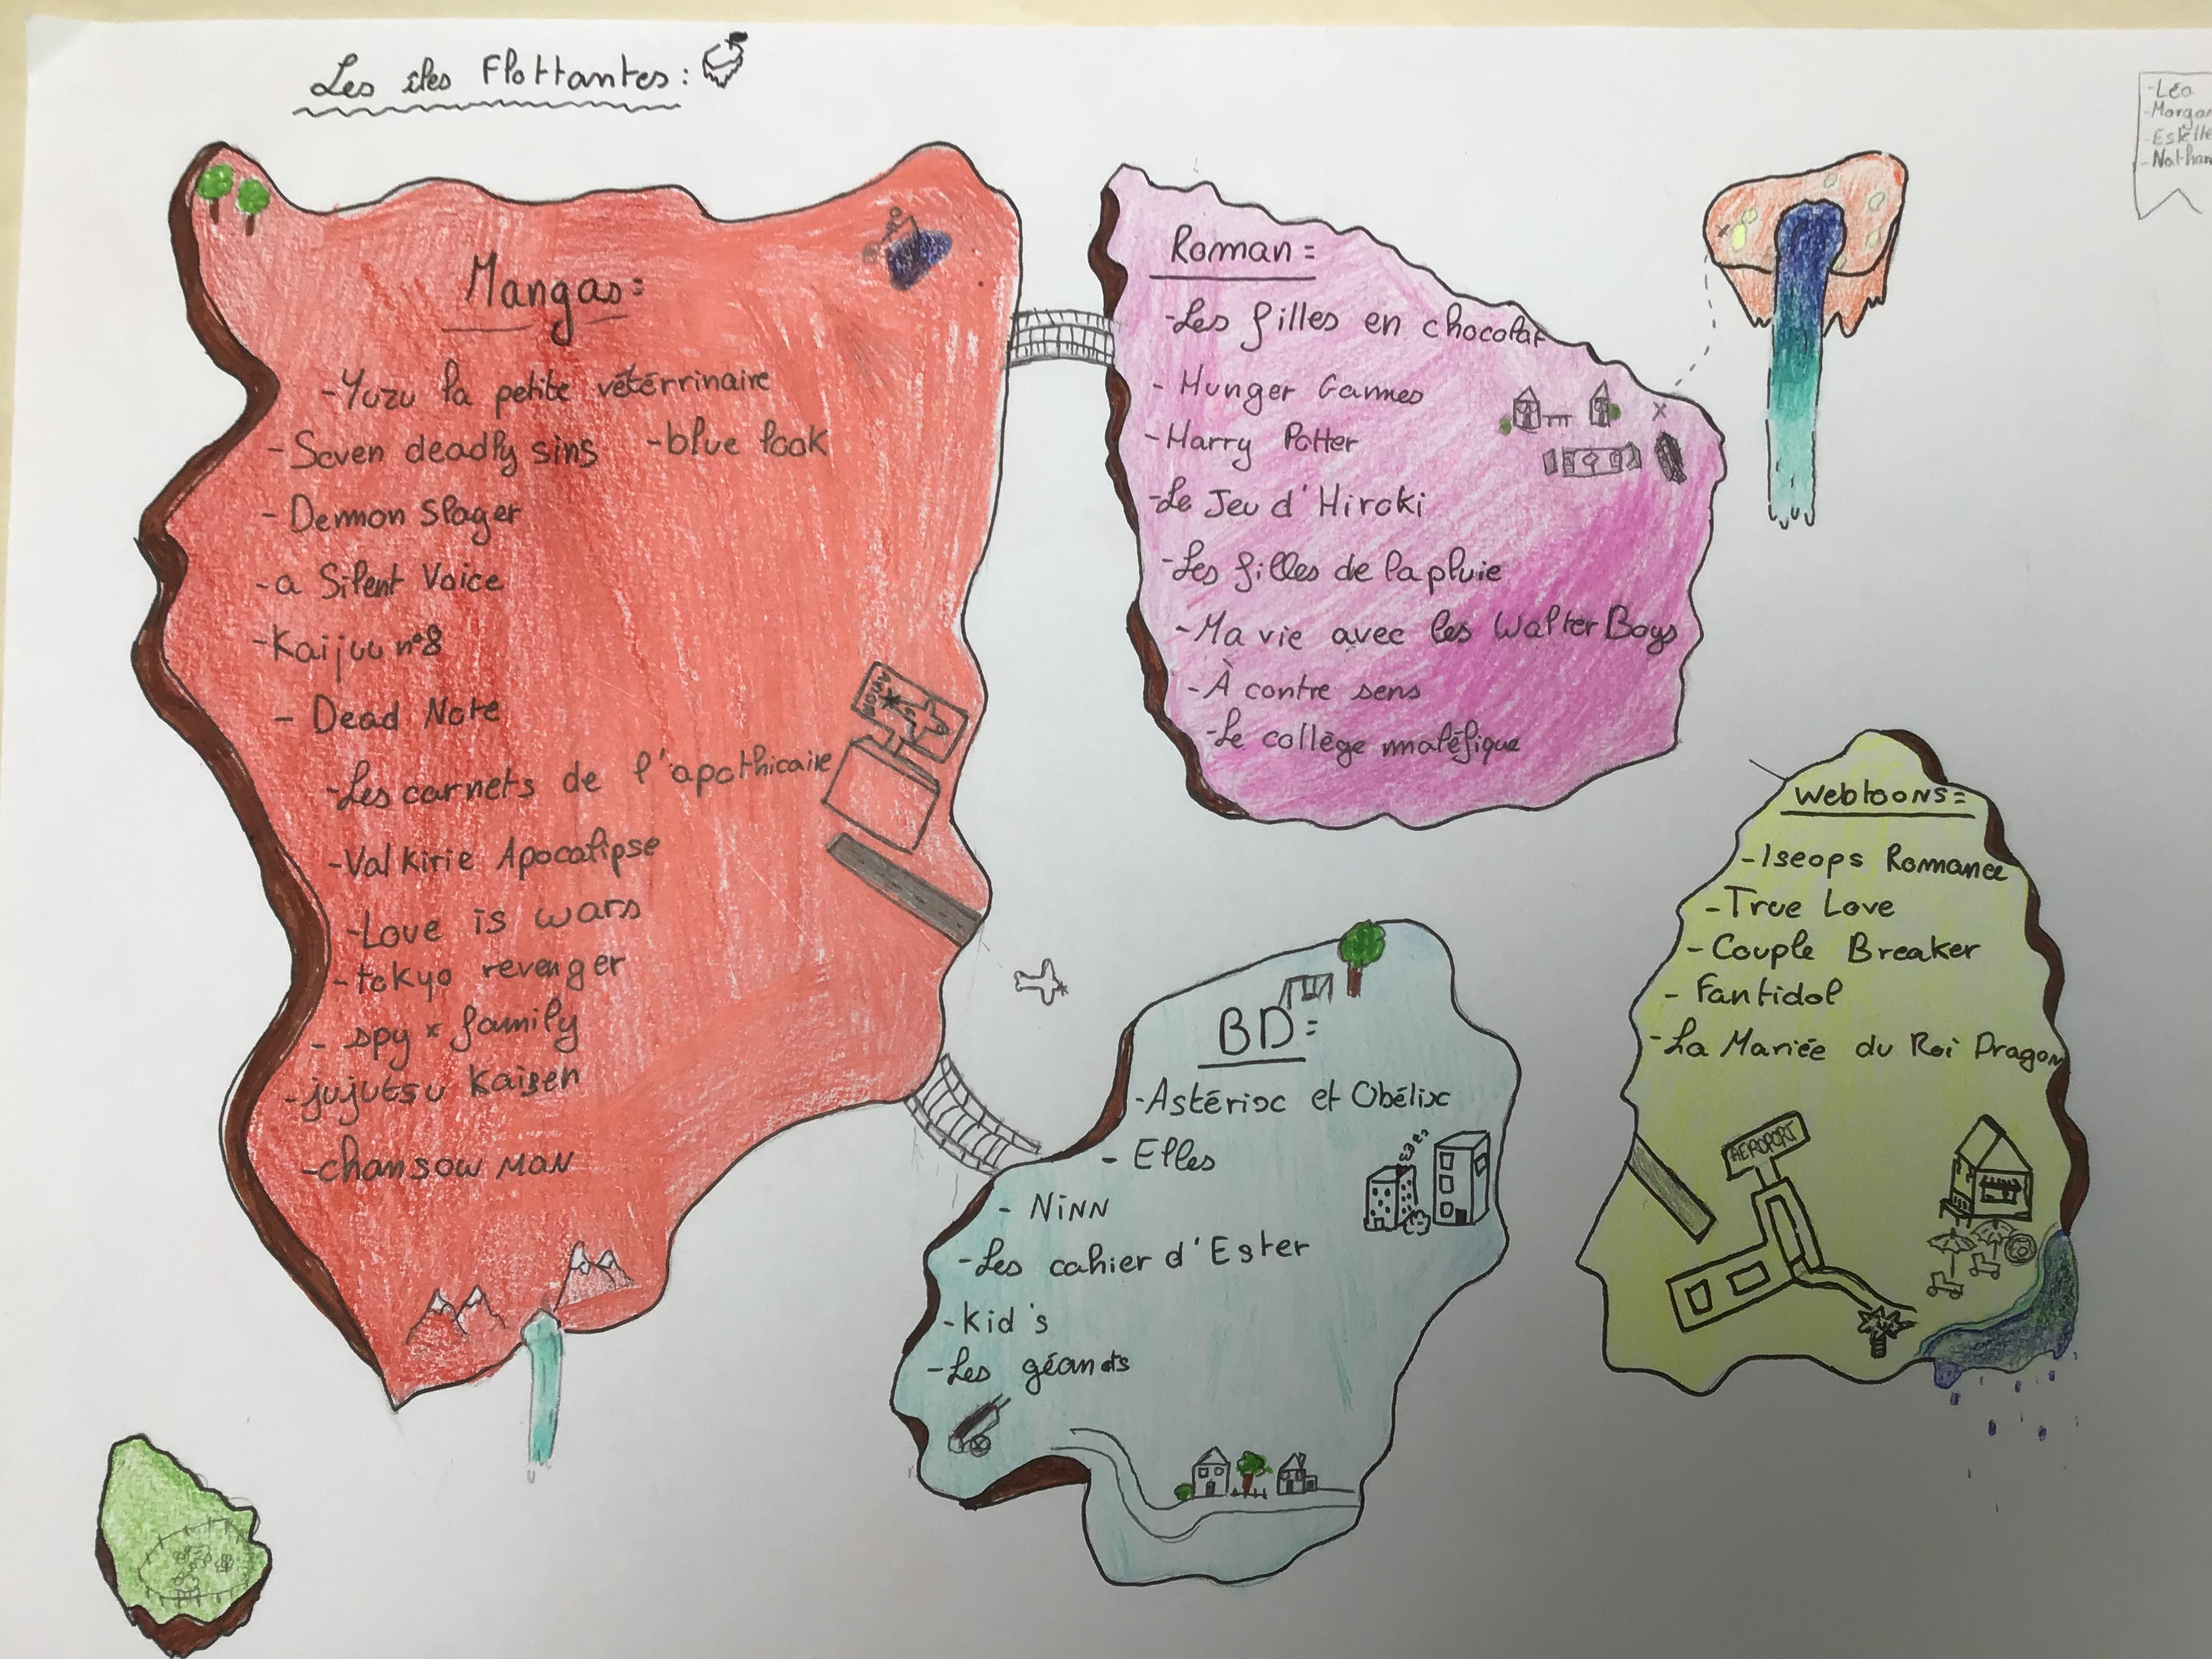 Les îles Flottantes:
-Léa
-Morgan
-Estelle
-Nathan
Mangas:
-Yuzu la petite vétérrinaire
-Seven deadly sins -blue look
-Demon Slager
-a Silent Voice
-Kaijuu n°8
- Dead Note
-Les carnets de l'apothicaire
-Valkirie Apocalipse
-Love is wars
-tokyo revenger
- spy * family
-jujutsu Kaisen
-chansow MAN
Roman:
-Les filles en chocolat
- Hunger Games
-Harry Potter
-Le Jeu d'Hiroki
-Les filles de la pluie
-Ma vie avec les Walter Boys
-À contre sens
-Le collège maléfique
BD:
-Astérix et Obélix
- Elles
- NiNN
-Les cahier d'Ester
-Kid's
-Les géants
Webtoons:
-Iseops Romance
-True Love
-Couple Breaker
- Fantidol
-La Mariée du Roi Dragon
AEROPORT